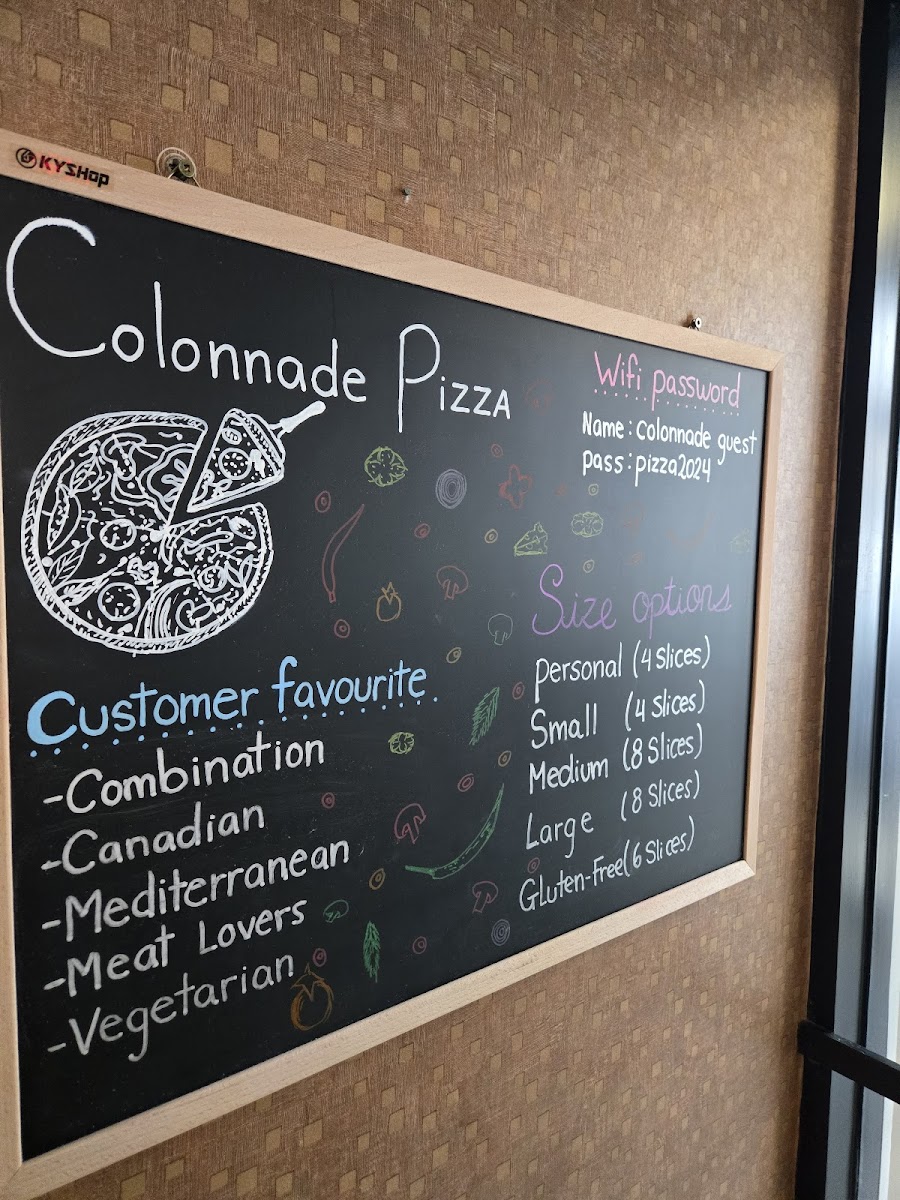 KYSHop
Colonnade Pizza
Wifi password
Name: colonnade guest
pass: pizza2024
Customer favourite
-Combination
-Canadian
-Mediterranean
-Meat Lovers
-Vegetarian
Size options
personal (4 Slices)
Small (4 Slices)
Medium (8 Slices)
Large (8 Slices)
Gluten-Free (6 Slices)